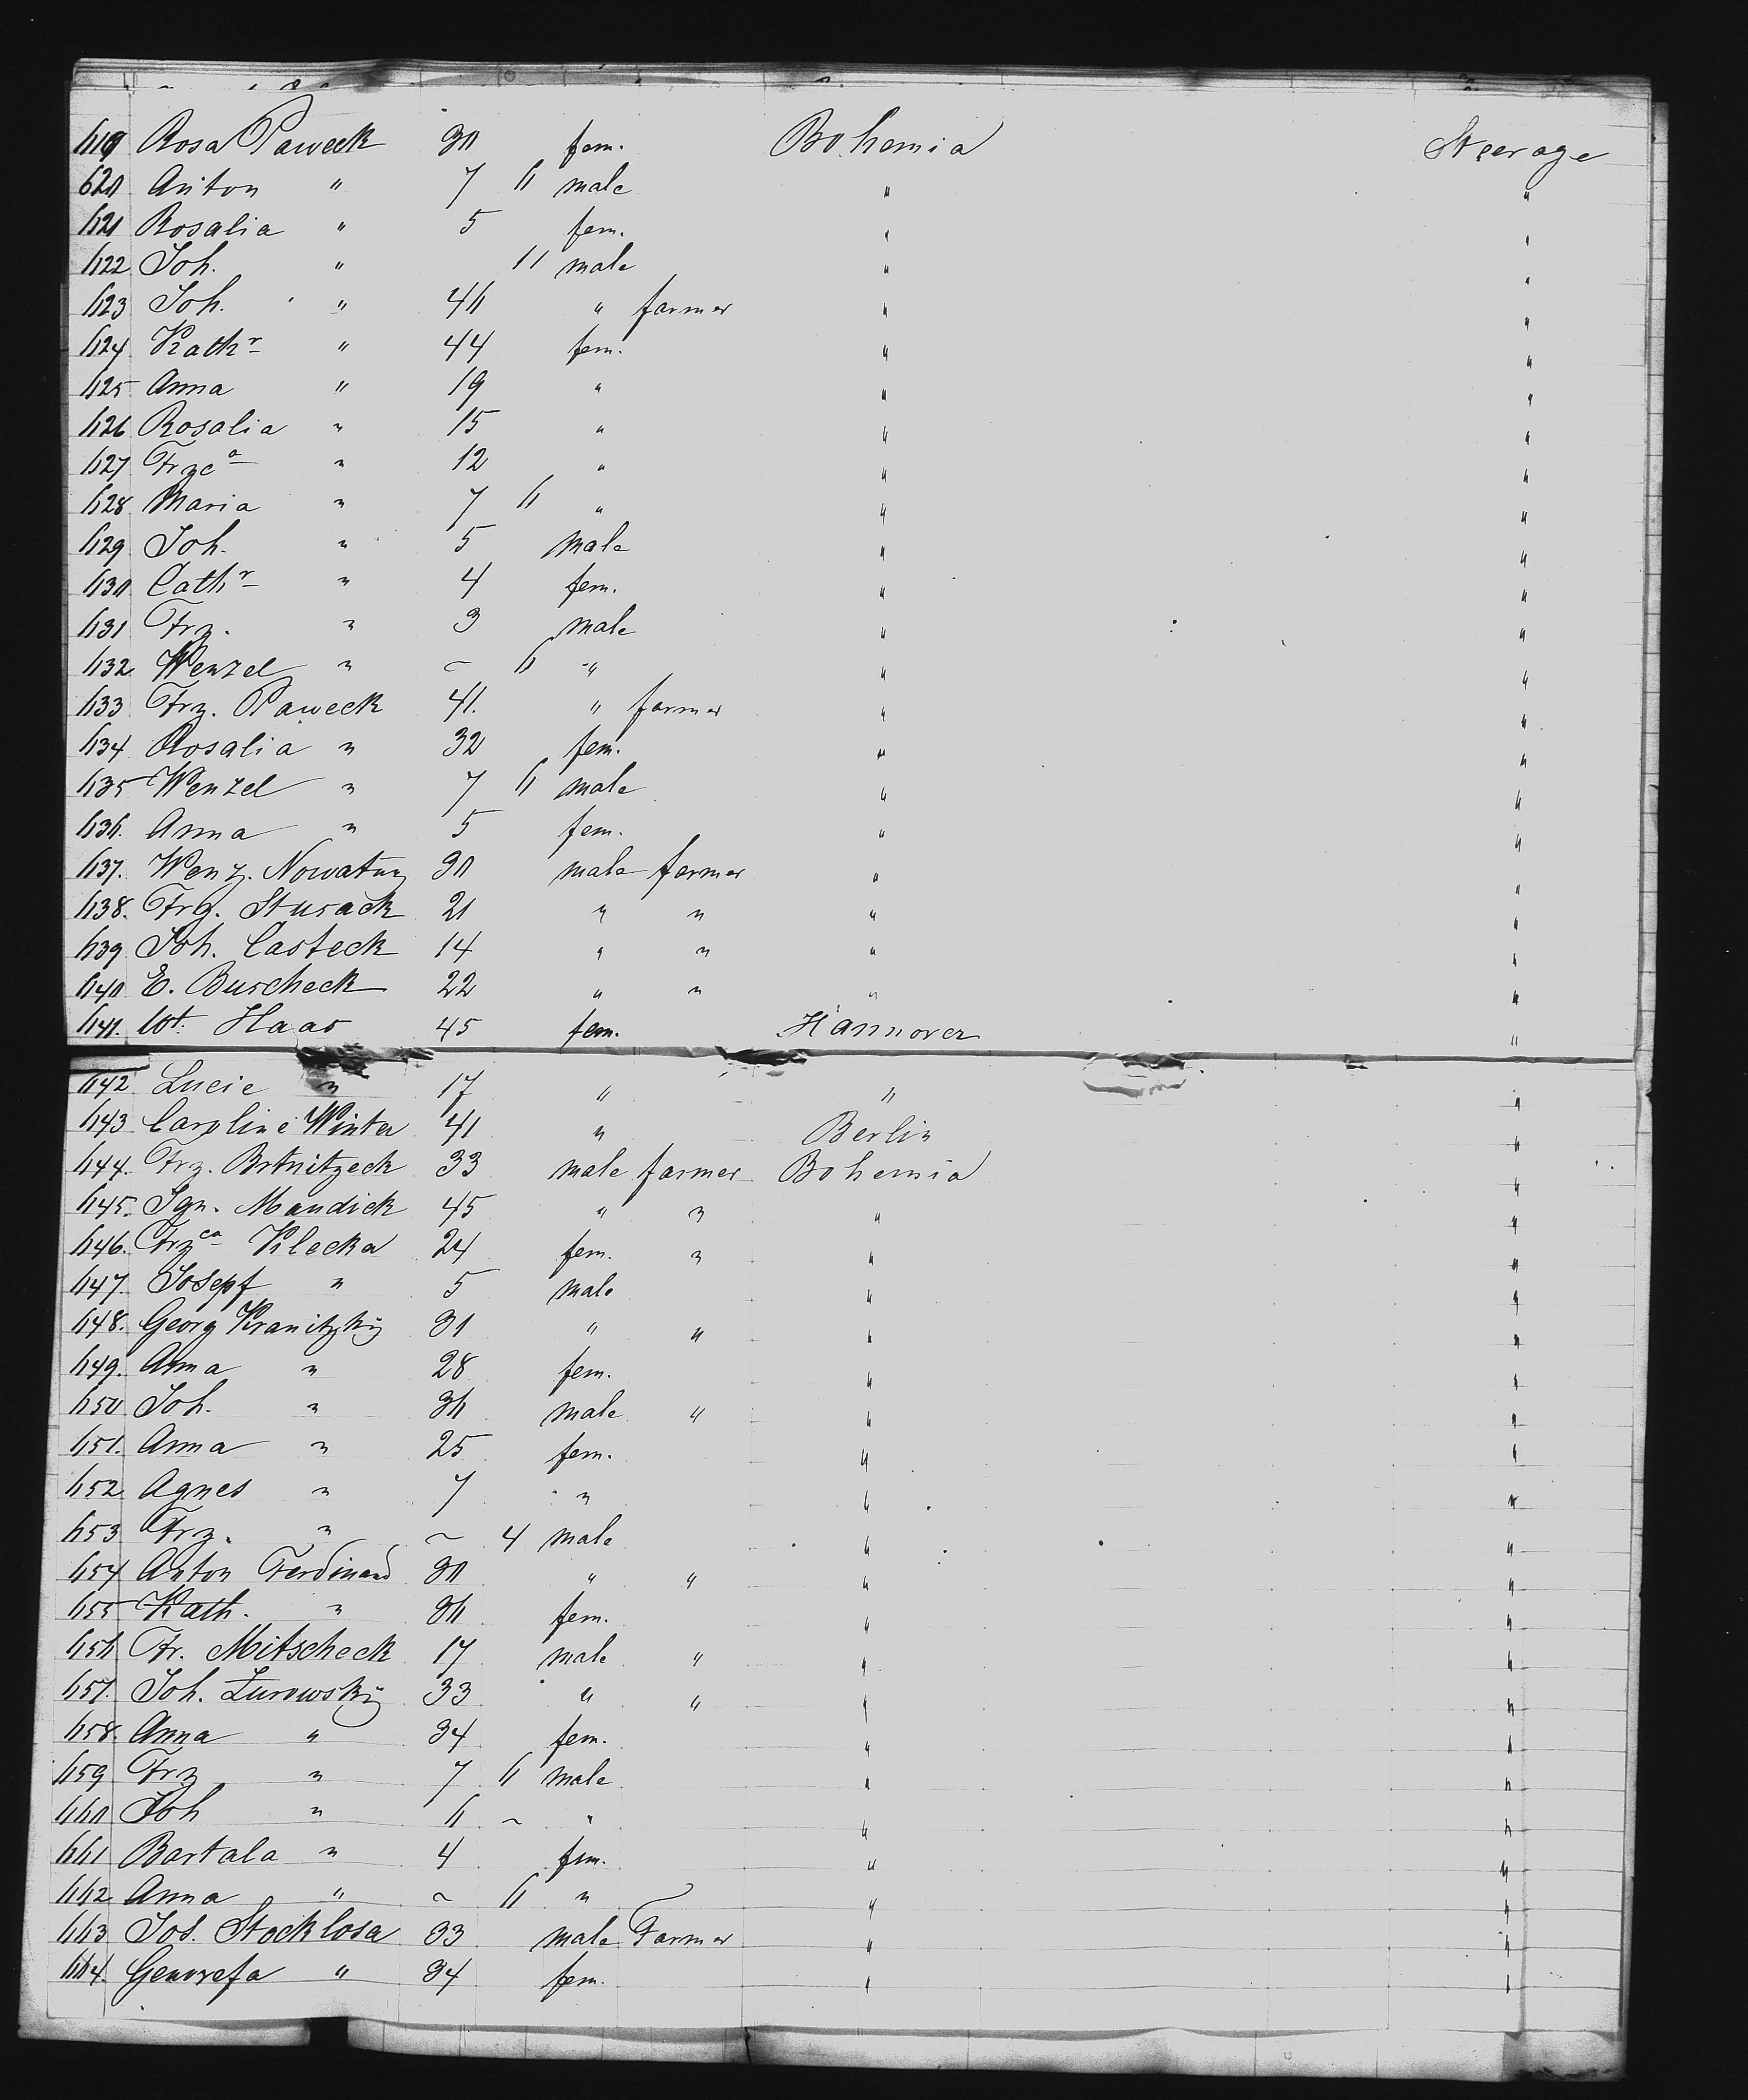 619 Rosa Paweck 30 fem. Bohemia Steerage
620 Anton " 7 6 male " "
621 Rosalia " 5 fem. " "
622 Joh. " 11 male " "
623 Joh. " 46 " farmer " "
624 Kathr " 44 fem. " "
625 Anna " 19 " " "
626 Rosalia " 15 " " "
627 Frzca " 12 " " "
628 Maria " 7 6 " " "
629 Joh. " 5 male " "
630 Cathr " 4 fem. " "
631 Frz. " 3 male " "
632 Wenzel " ~ 6 " " "
633 Frz. Paweck 41. " farmer " "
634 Rosalia " 32 fem. " "
635 Wenzel " 7 6 male " "
636. Anna " 5 fem. " "
637. Wenz. Nowatny 30 male farmer " "
638. Frz. Stusack 21 " " " "
639 Joh. Casteck 14 " " " "
640 E. Buscheck 22 " " " "
641. Haas 45 fem. Hannover "
642 Lucie " 17 " " "
643 Caroline Winter 41 " Berlin "
644. Frz. Brtnitzeck 33 male farmer Bohemia "
645. Ign. Mandick 45 " " " "
646. Frzca Klecka 24 fem. " " "
647. Josepf " 5 male " "
648. Georg Kranitzky 31 " " " "
649. Anna " 28 fem. " "
650 Joh. " 36 male " " "
651. Anna " 25 fem. " "
652 Agnes " 7 " " "
653 Frz. " ~ 4 male " "
654 Anton Ferdinand 30 " " " "
655 Kath. " 36 fem. " "
656 Fr. Mitscheck 17 male " " "
657. Joh. Zurowsky 33 " " " "
658. Anna " 34 fem. " "
659 Frz " 7 6 male " "
660 Joh " 6 ~ " " "
661 Bartala " 4 fem. " "
662 Anna " ~ 6 " " "
663 Jos. Stocklosa 33 male Farmer " "
664. Genovefa " 34 fem. " "